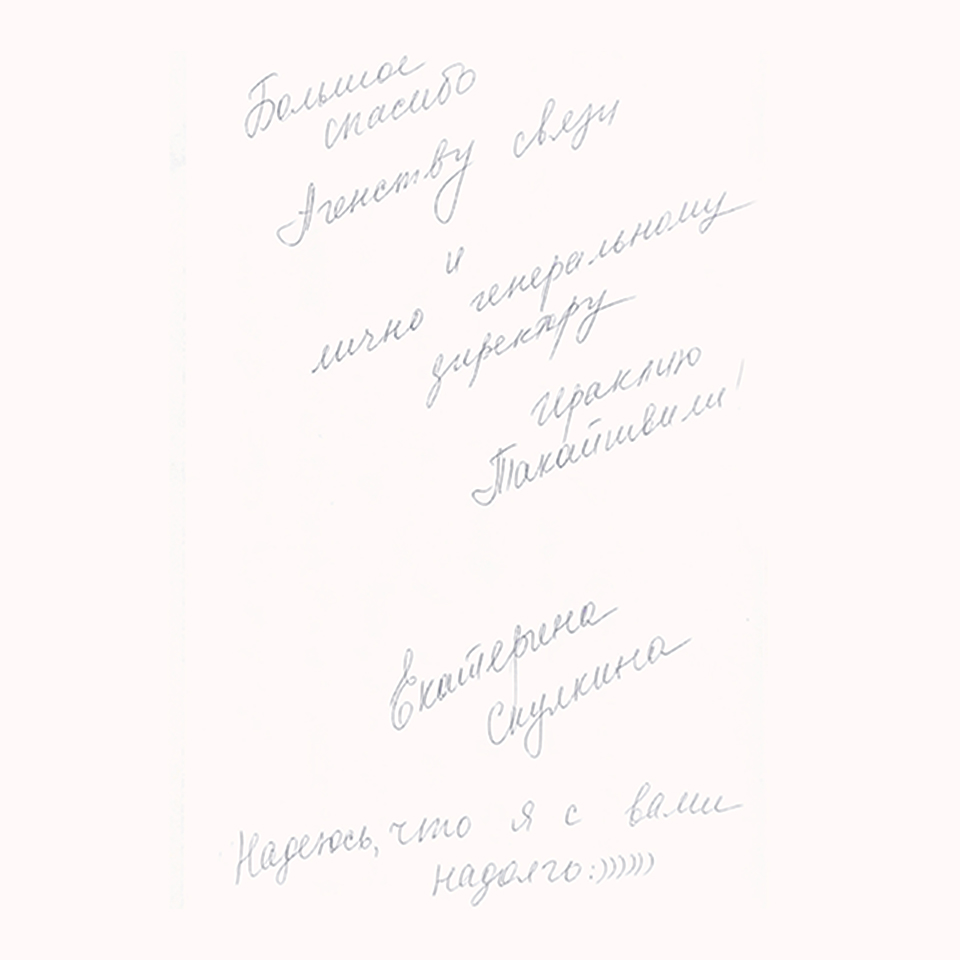 Большое
спасибо
Агенству связи
и
лично генеральному
директору
Ираклию
Такайшвили!
Екатерина
Скулкина
Надеюсь, что я с вами
надолго:))))))